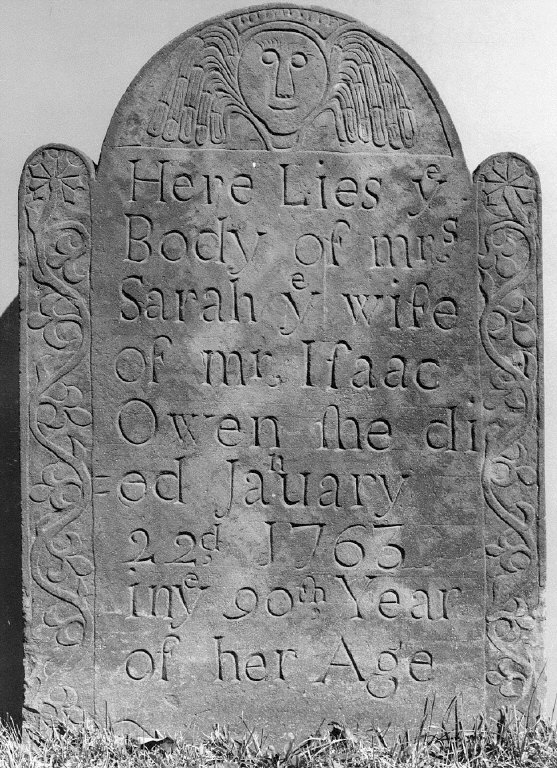 Here Lies yᵉ
Body of mrˢ
Sarah yᵉ wife
of mr. Iſaac
Owen ſhe di
=ed Jaⁿuary
22ᵈ 1763
in yᵉ 90ᵗʰ Year
of her Age